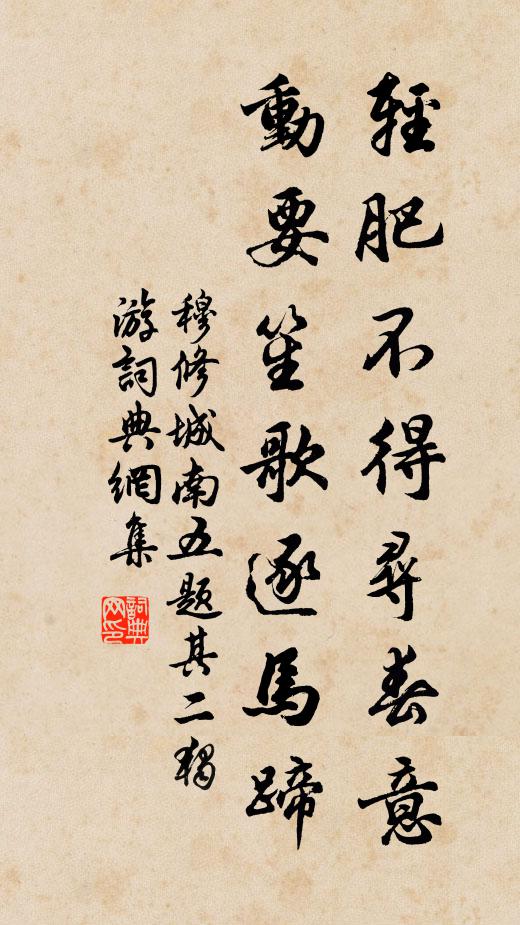 輕肥不得尋春意
動要笙歌逐馬蹄
穆修城南五题其二獨
游詞典網集
詞典网印